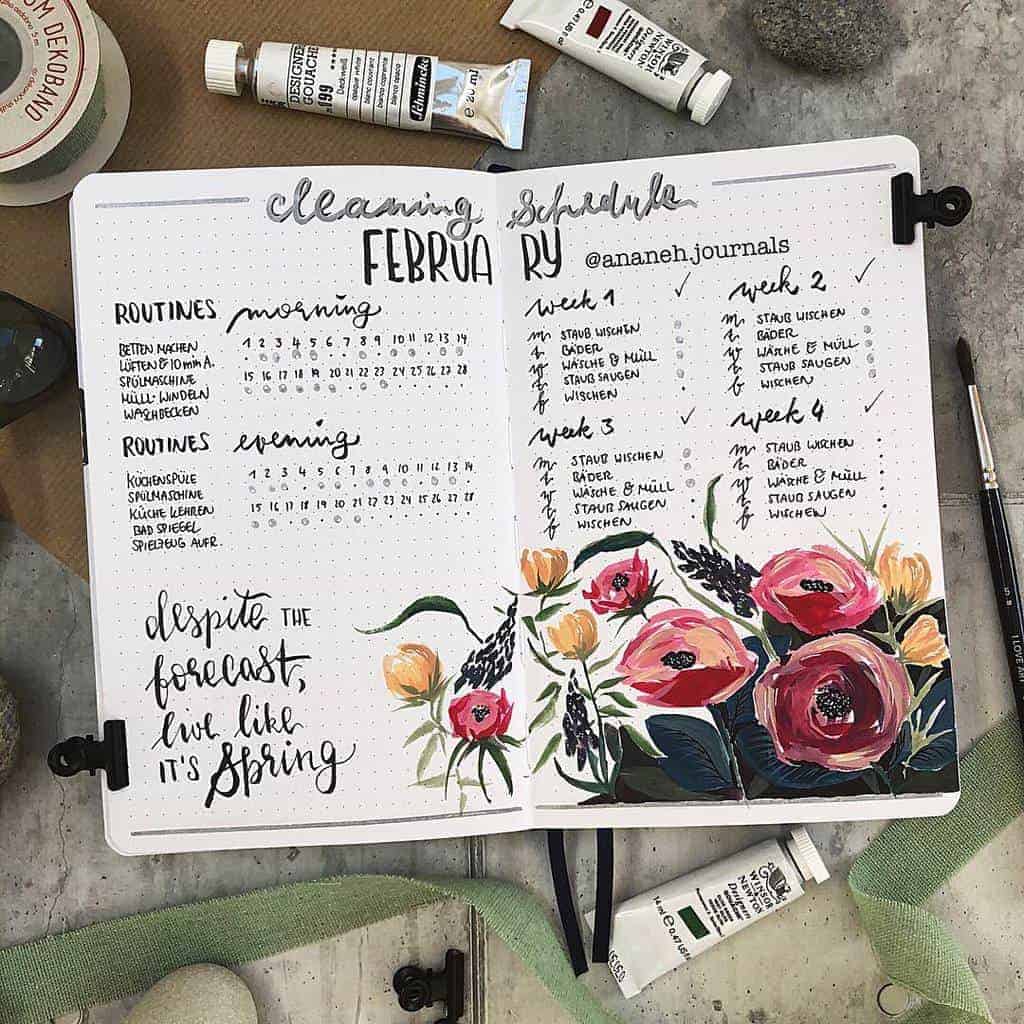 OM DEKOBAND
DESIGNERS
GOUACHE
199
Deckweiß
opaque white
blanc couvrant
blanco opaco
Schmincke
e 20 ml
0.47 US fl oz
WINSOR
& NEWTON
cleaning schedule
FEBRUARY
@ananeh.journals
ROUTINES morning
1 2 3 4 5 6 7 8 9 10 11 12 13 14
15 16 17 18 19 20 21 22 23 24 25 26 27 28
BETTEN MACHEN
LÜFTEN & 10 min A.
SPÜLMASCHINE
MÜLL- WINDELN
WASCHBECKEN
ROUTINES evening
1 2 3 4 5 6 7 8 9 10 11 12 13 14
15 16 17 18 19 20 21 22 23 24 25 26 27 28
KÜCHENSPÜLE
SPÜLMASCHINE
KÜCHE KEHREN
BAD SPIEGEL
SPIELZEUG AUFR.
despite THE
forecast,
live like
IT'S spring
week 1 ✓
m STAUB WISCHEN
t BÄDER
w WÄSCHE & MÜLL
t STAUB SAUGEN
f WISCHEN
week 2 ✓
m STAUB WISCHEN
t BÄDER
w WÄSCHE & MÜLL
t STAUB SAUGEN
f WISCHEN
week 3 ✓
m STAUB WISCHEN
t BÄDER
w WÄSCHE & MÜLL
t STAUB SAUGEN
f WISCHEN
week 4 ✓
m STAUB WISCHEN
t BÄDER
w WÄSCHE & MÜLL
t STAUB SAUGEN
f WISCHEN
I LOVE ART
WINSOR
& NEWTON
Designers
14 ml
0.47 US fl oz